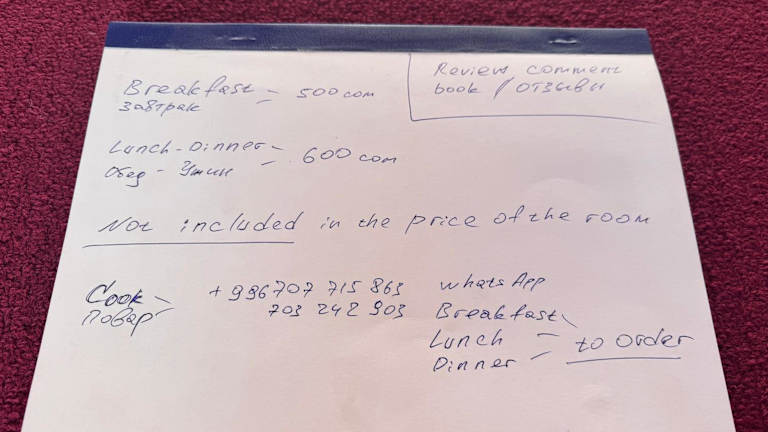 Review comment
book / отзывы
Breakfast = 500 сом
завтрак
Lunch-Dinner = 600 сом
Обед - Ужин
Not included in the price of the room
Cook - +996707 715 863 WhatsApp
повар 703 242 903
Breakfast
Lunch = to order
Dinner